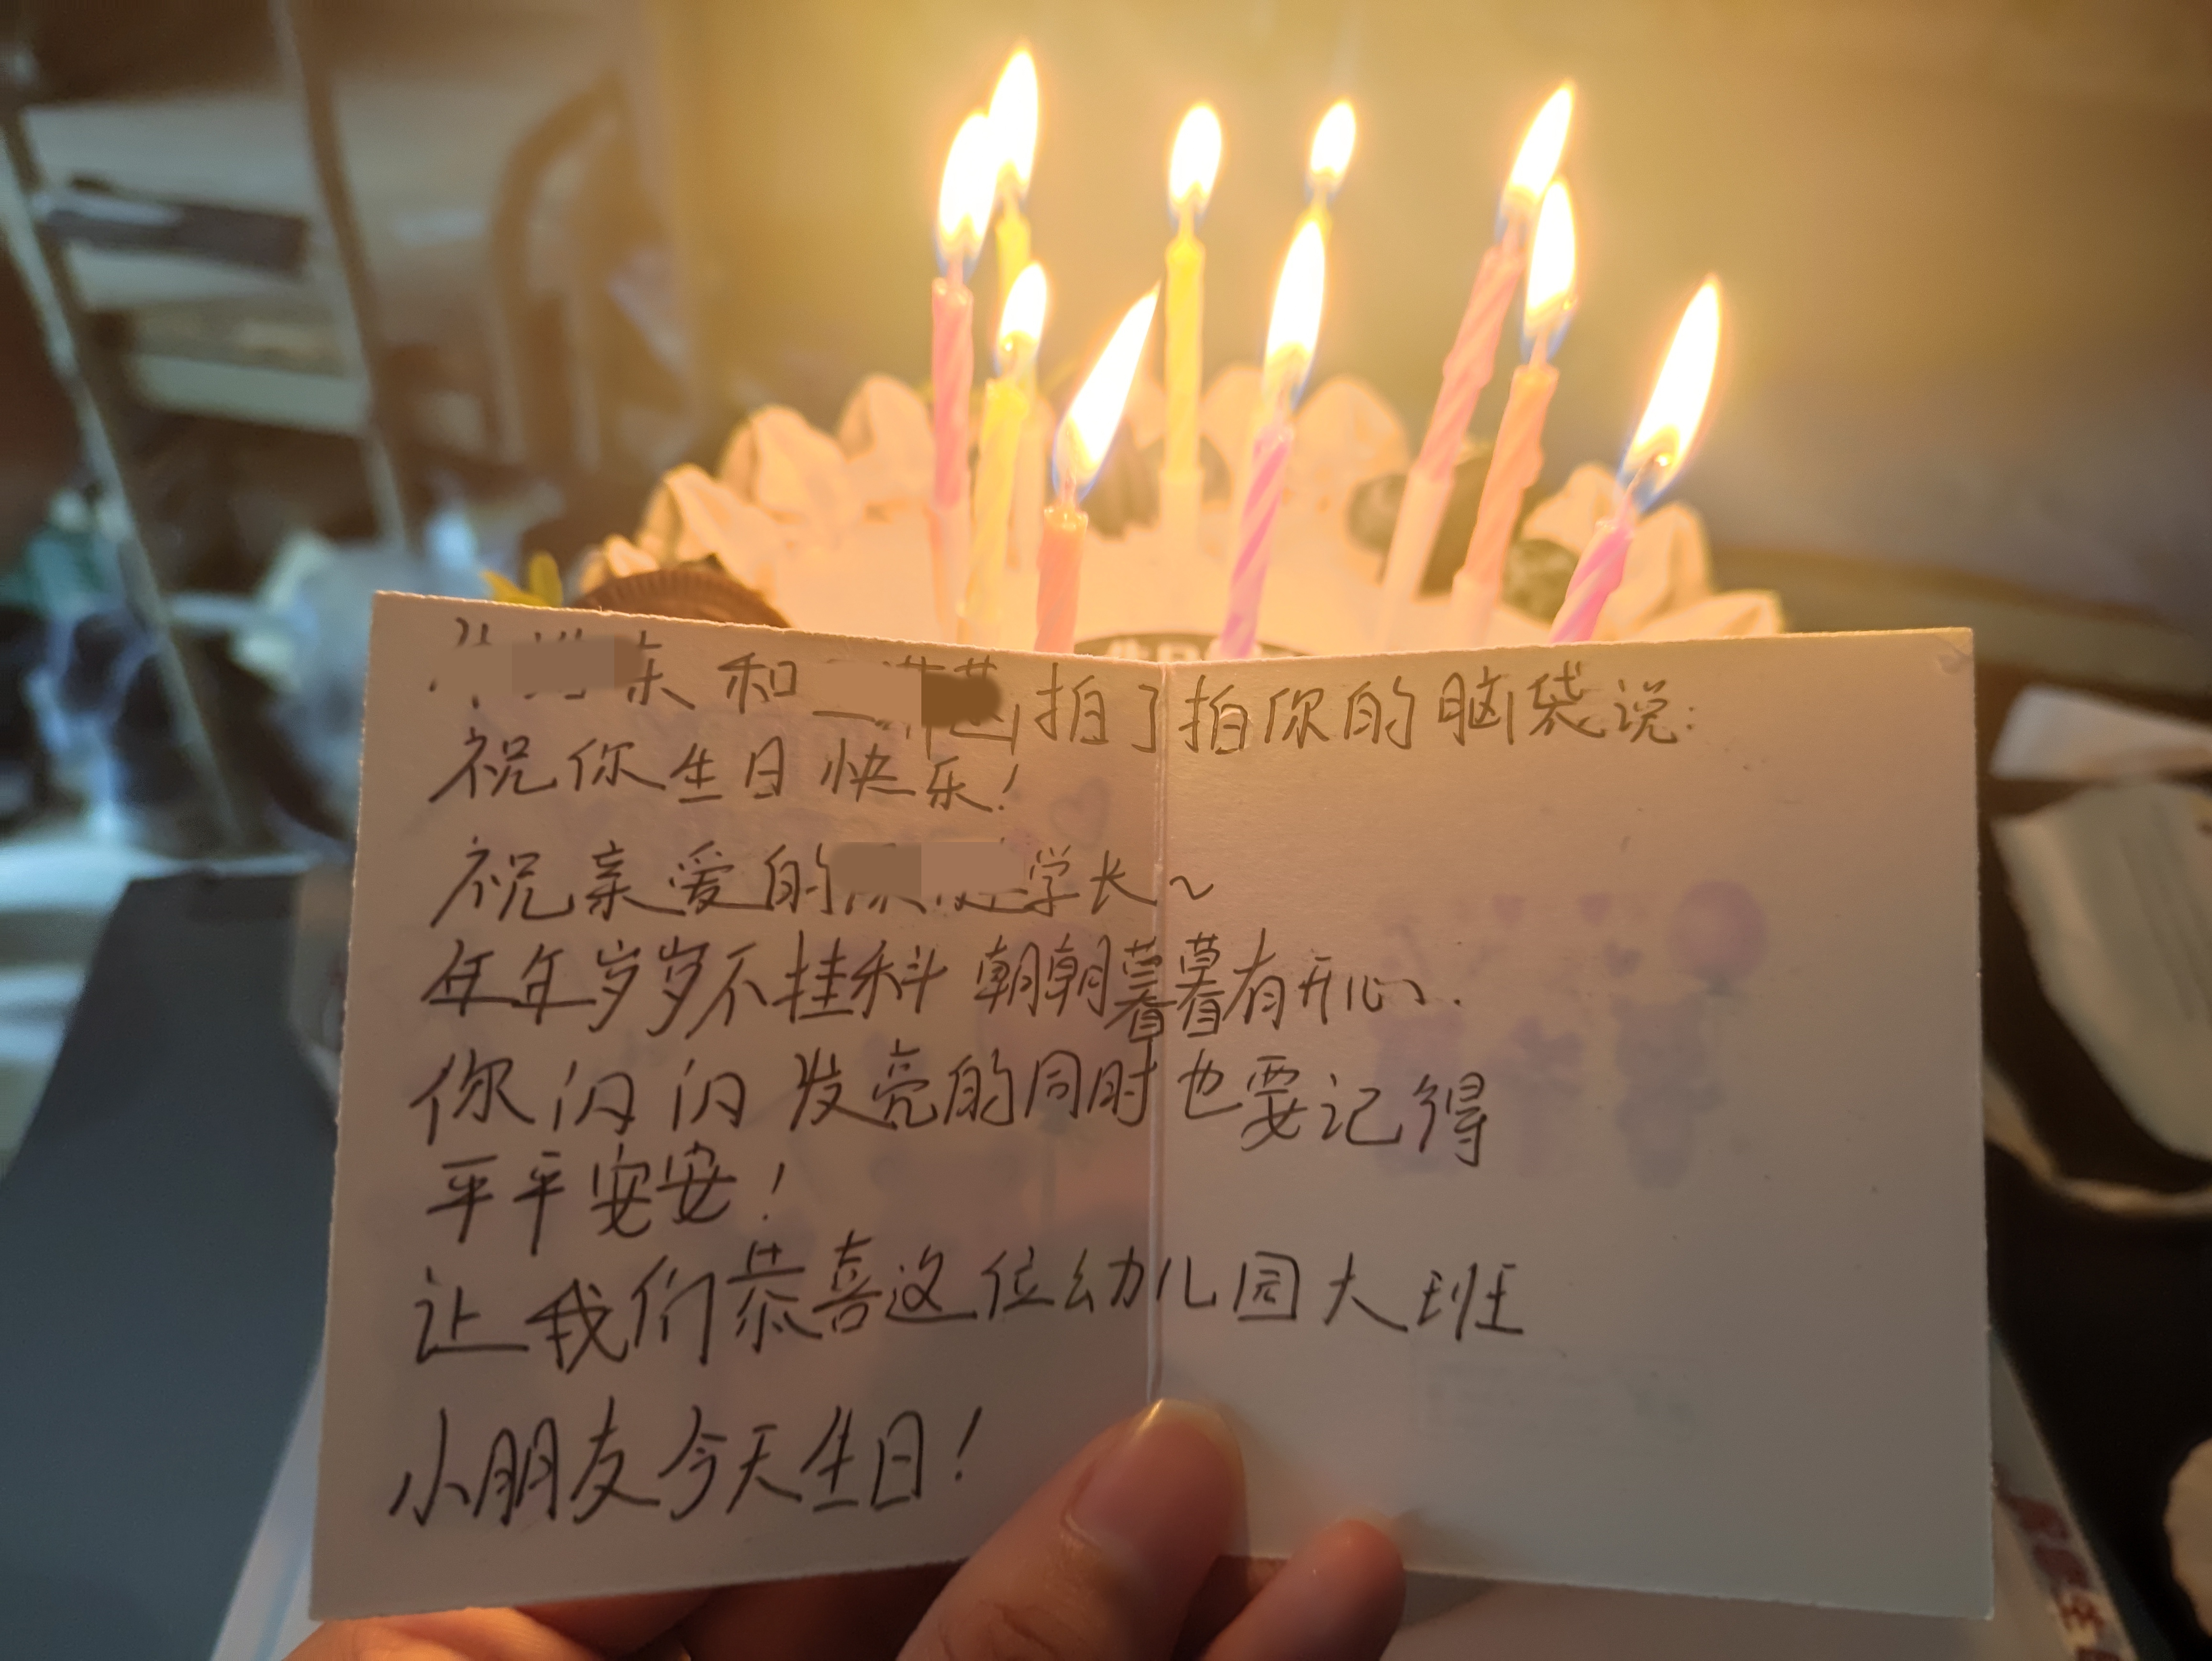 和 拍了拍你的脑袋说:
祝你生日快乐!
祝亲爱的 学长~
年年岁岁不挂科 朝朝暮暮有开心.
你闪闪发亮的同时也要记得
平平安安!
让我们恭喜这位幼儿园大班
小朋友今天生日!